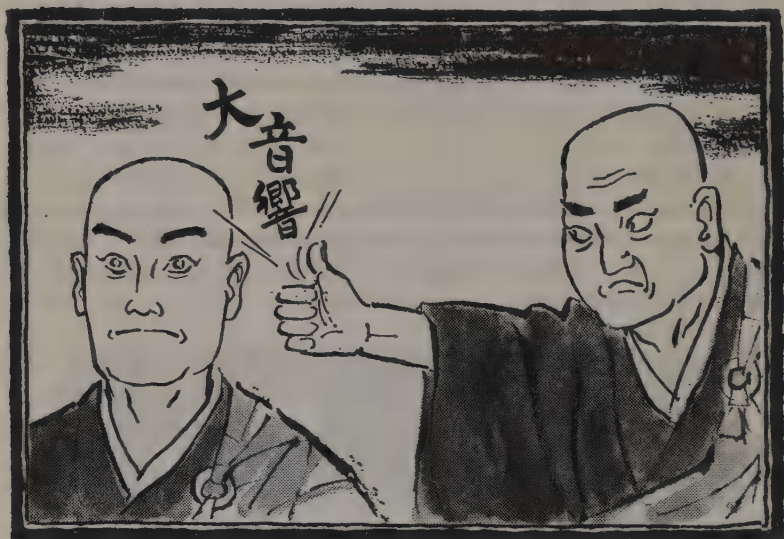 大音響